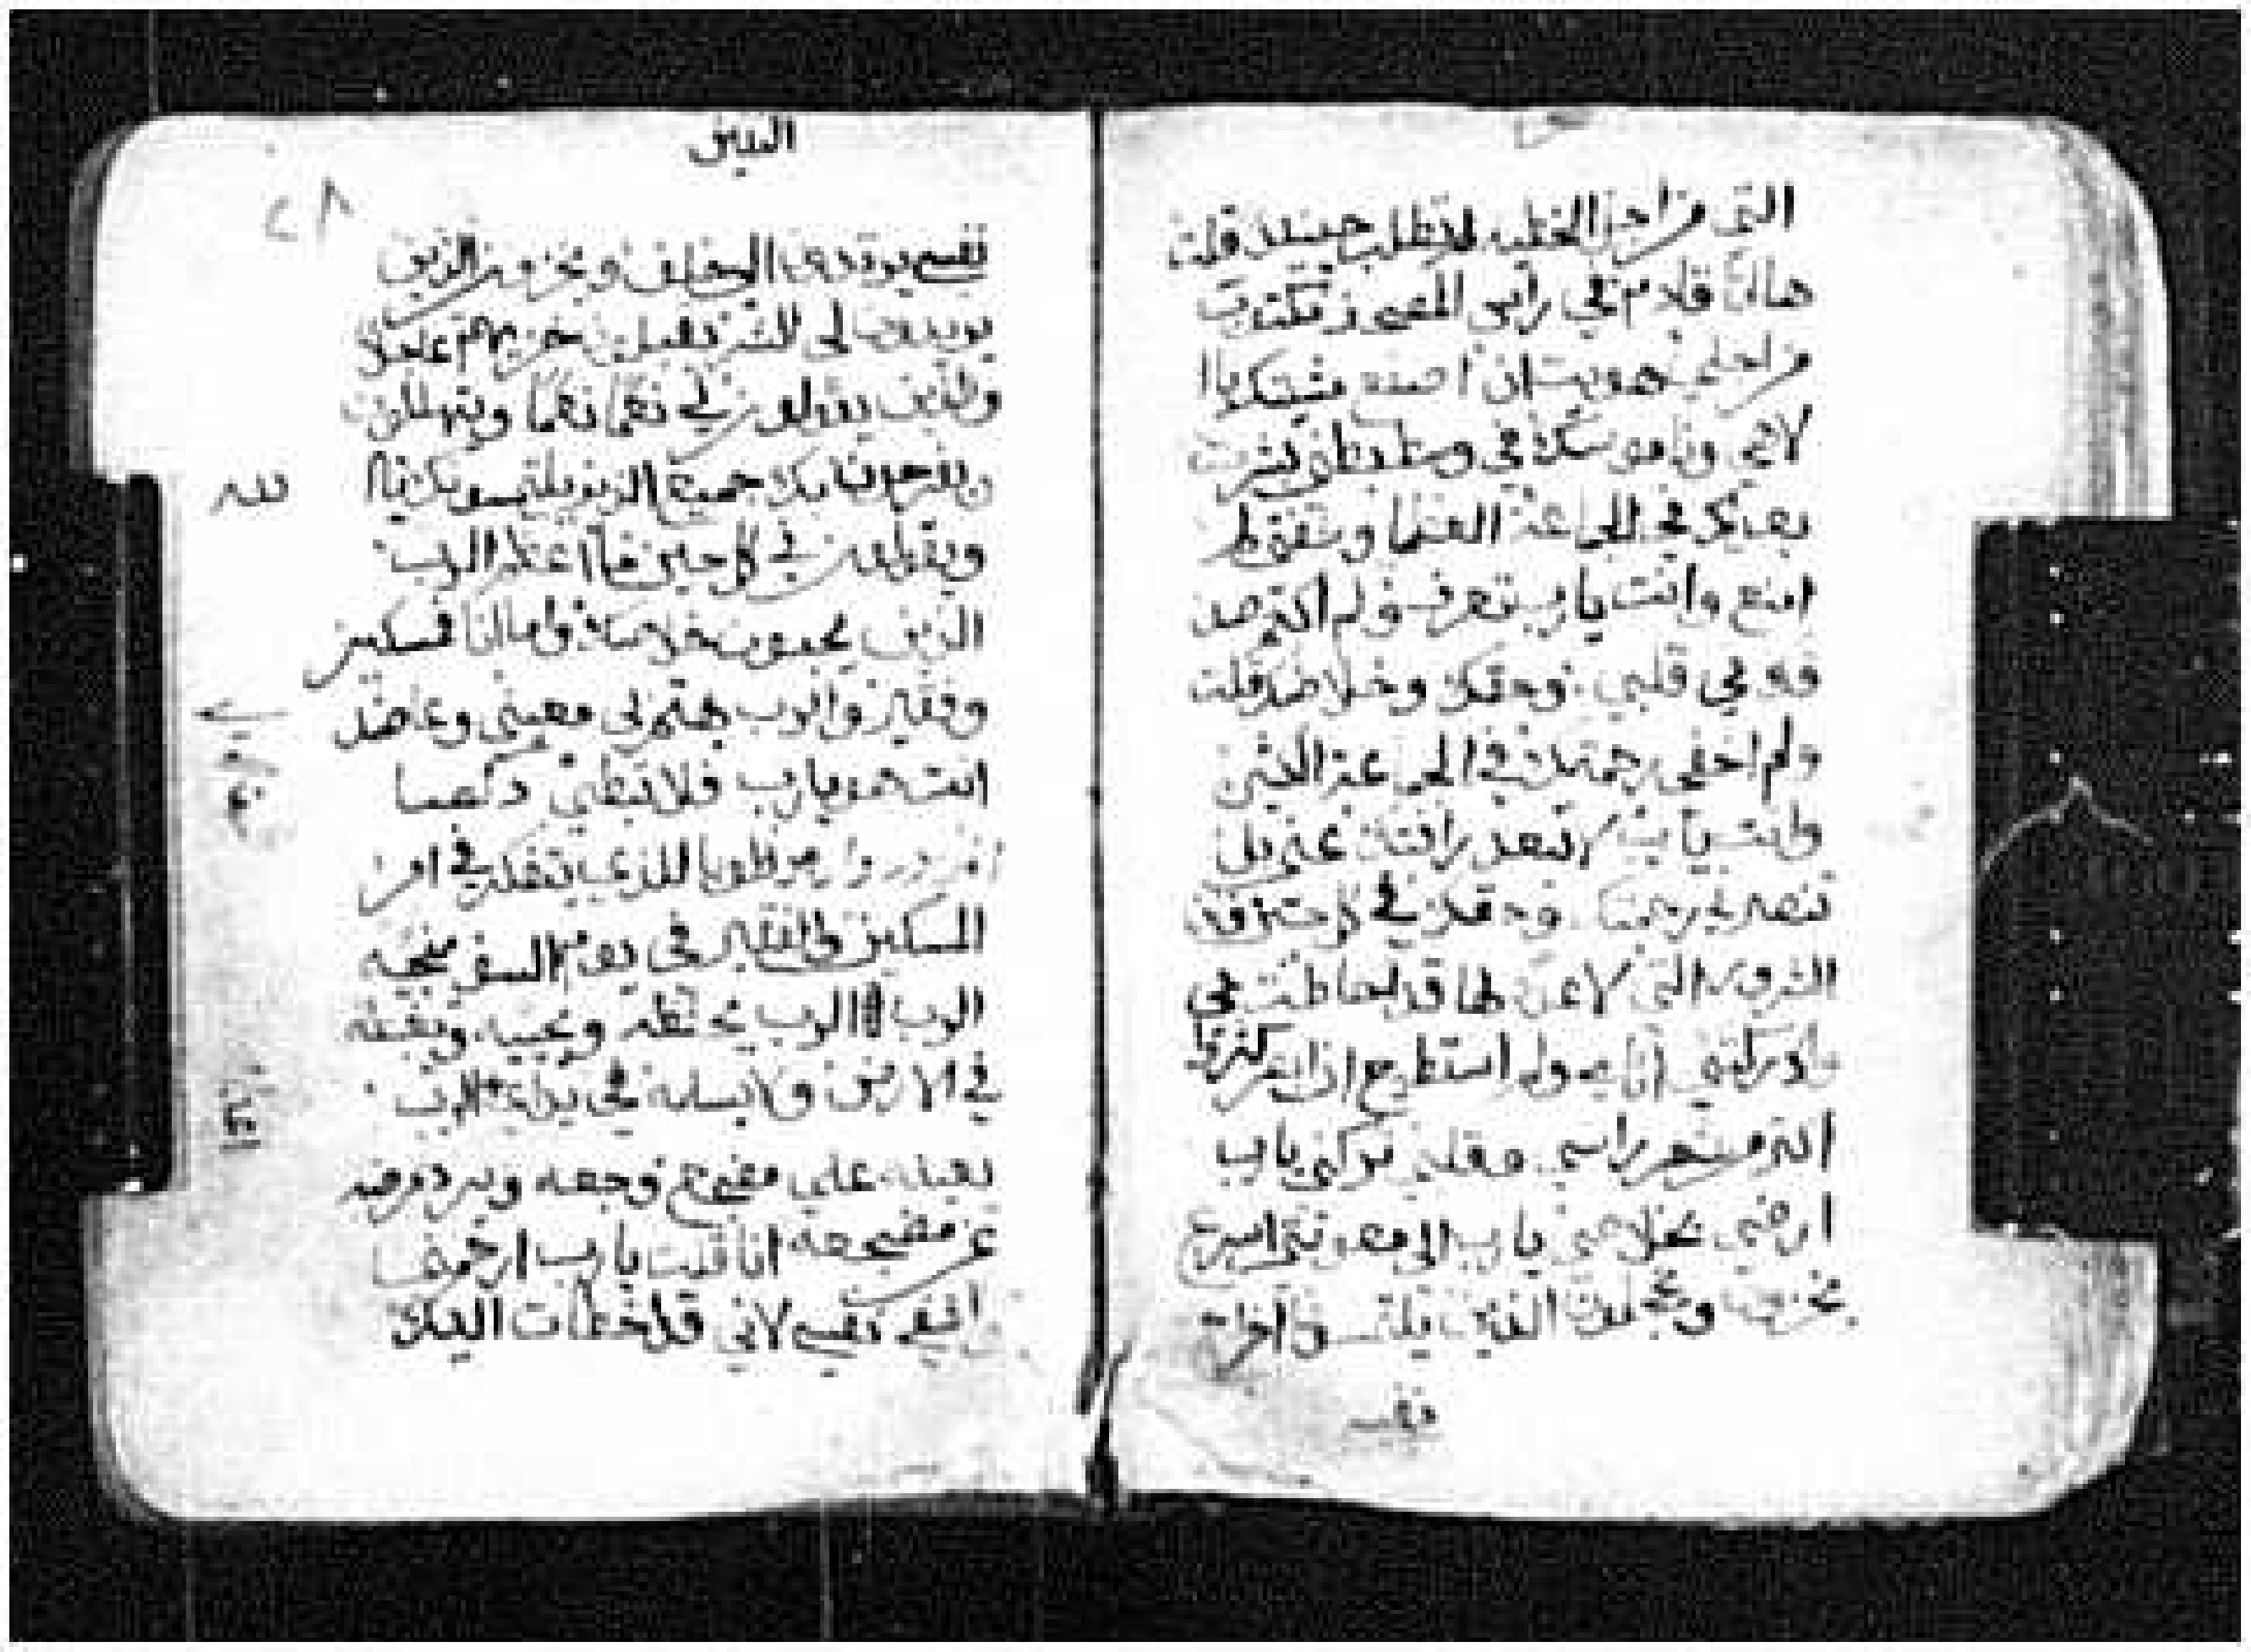 التي من اجل الخطيه لم تطلب حينيذ قلت
هاانا قادم في راس المصحف مكتوب
من اجلي هويت ان اصنع مشيتك يا ا
لاهي وناموسك في وسط بطني بشرت
بعدلك في الجماعة العظما وشفتي لم
امنع وانت يارب تعرف ولم اكتم
في قلبي وحقك وخلاصك قلت
ولم اخفي رحمتك في الجماعة
وانت يارب لا تبعد رافتك عني بل
تنصرني رحمتك وحقك في كل حين فان
الشرور التي لا عدد لها قد احاطت بي
وادركتني اثامي ولم استطيع ان ابصر كثرت
اكثر من شعر راسي وقلبي تركني يارب
ارضى بخلاصي يا رب الى معونتي اسرع
يخزون ويخجلون الذين يلتمسون اخراج
نفسي
النبين
٢٨
نفسي يرتدون الي خلف ويخزون الذين
يريدون لي الشر يقبلون خزيهم عاجلا
والذين يقولون لي نعما نعما ويتهللون
ويفرحون بك جميع الذين يلتمسونك يا
ويقولون في كل حين عظم الرب
الذين يحبون خلاصك واما انا فمسكين
وفقير والرب يهتم بي معيني وعاضدي
انت هو يارب فلا تبطي
طوبا للذي يتفكر في امر
المسكين والفقير في يوم السو ينجيه
الرب الرب يحفظه ويحييه ويغبطه
في الارض ولا يسلمه في يدي الرب
يعينه علي مضجع وجعه
مضجعه انا قلت يارب ارحمني
اشف نفسي لاني قد خطات اليك